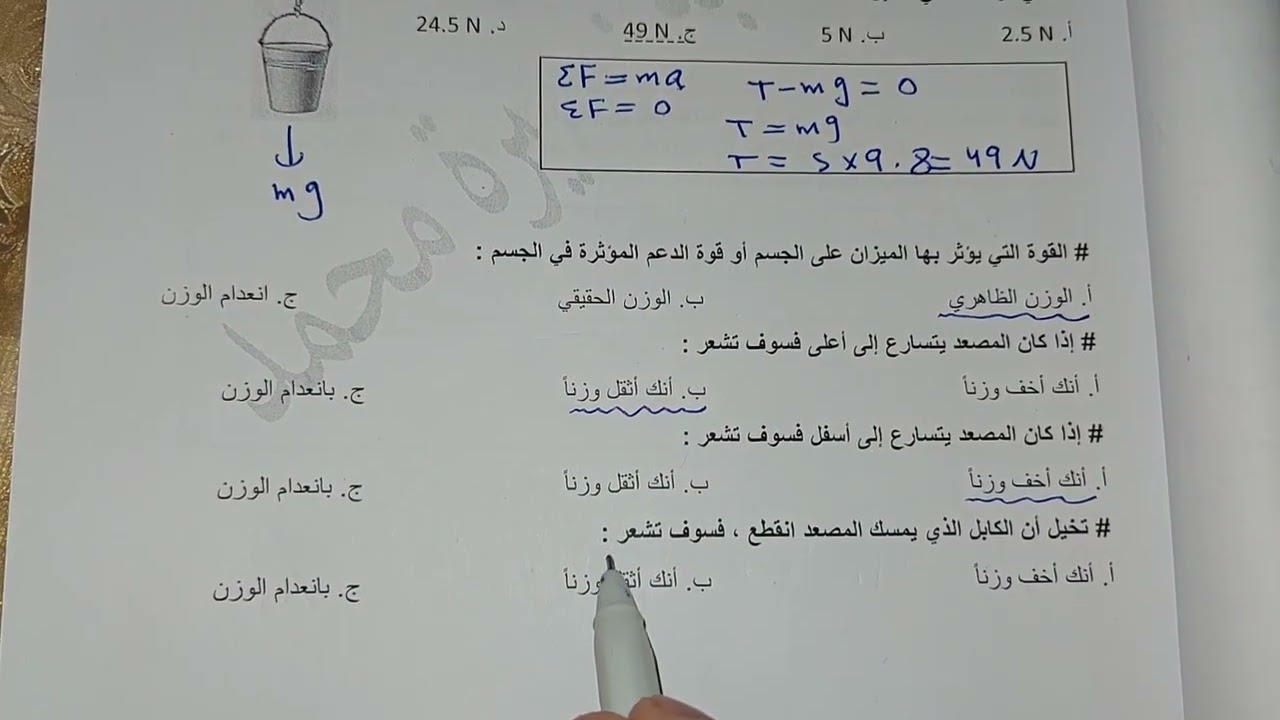 أ. 2.5 N ب. 5 N ج. 49 N د. 24.5 N
ΣF = ma T - mg = 0
ΣF = 0
T = mg
T = 5 x 9.8 = 49 N
mg
# القوة التي يؤثر بها الميزان على الجسم أو قوة الدعم المؤثرة في الجسم :
أ. الوزن الظاهري ب. الوزن الحقيقي ج. انعدام الوزن
# إذا كان المصعد يتسارع إلى أعلى فسوف تشعر :
أ. أنك أخف وزناً ب. أنك أثقل وزناً ج. بانعدام الوزن
# إذا كان المصعد يتسارع إلى أسفل فسوف تشعر :
أ. أنك أخف وزناً ب. أنك أثقل وزناً ج. بانعدام الوزن
# تخيل أن الكابل الذي يمسك المصعد انقطع ، فسوف تشعر :
أ. أنك أخف وزناً ب. أنك أثقل وزناً ج. بانعدام الوزن
محمد